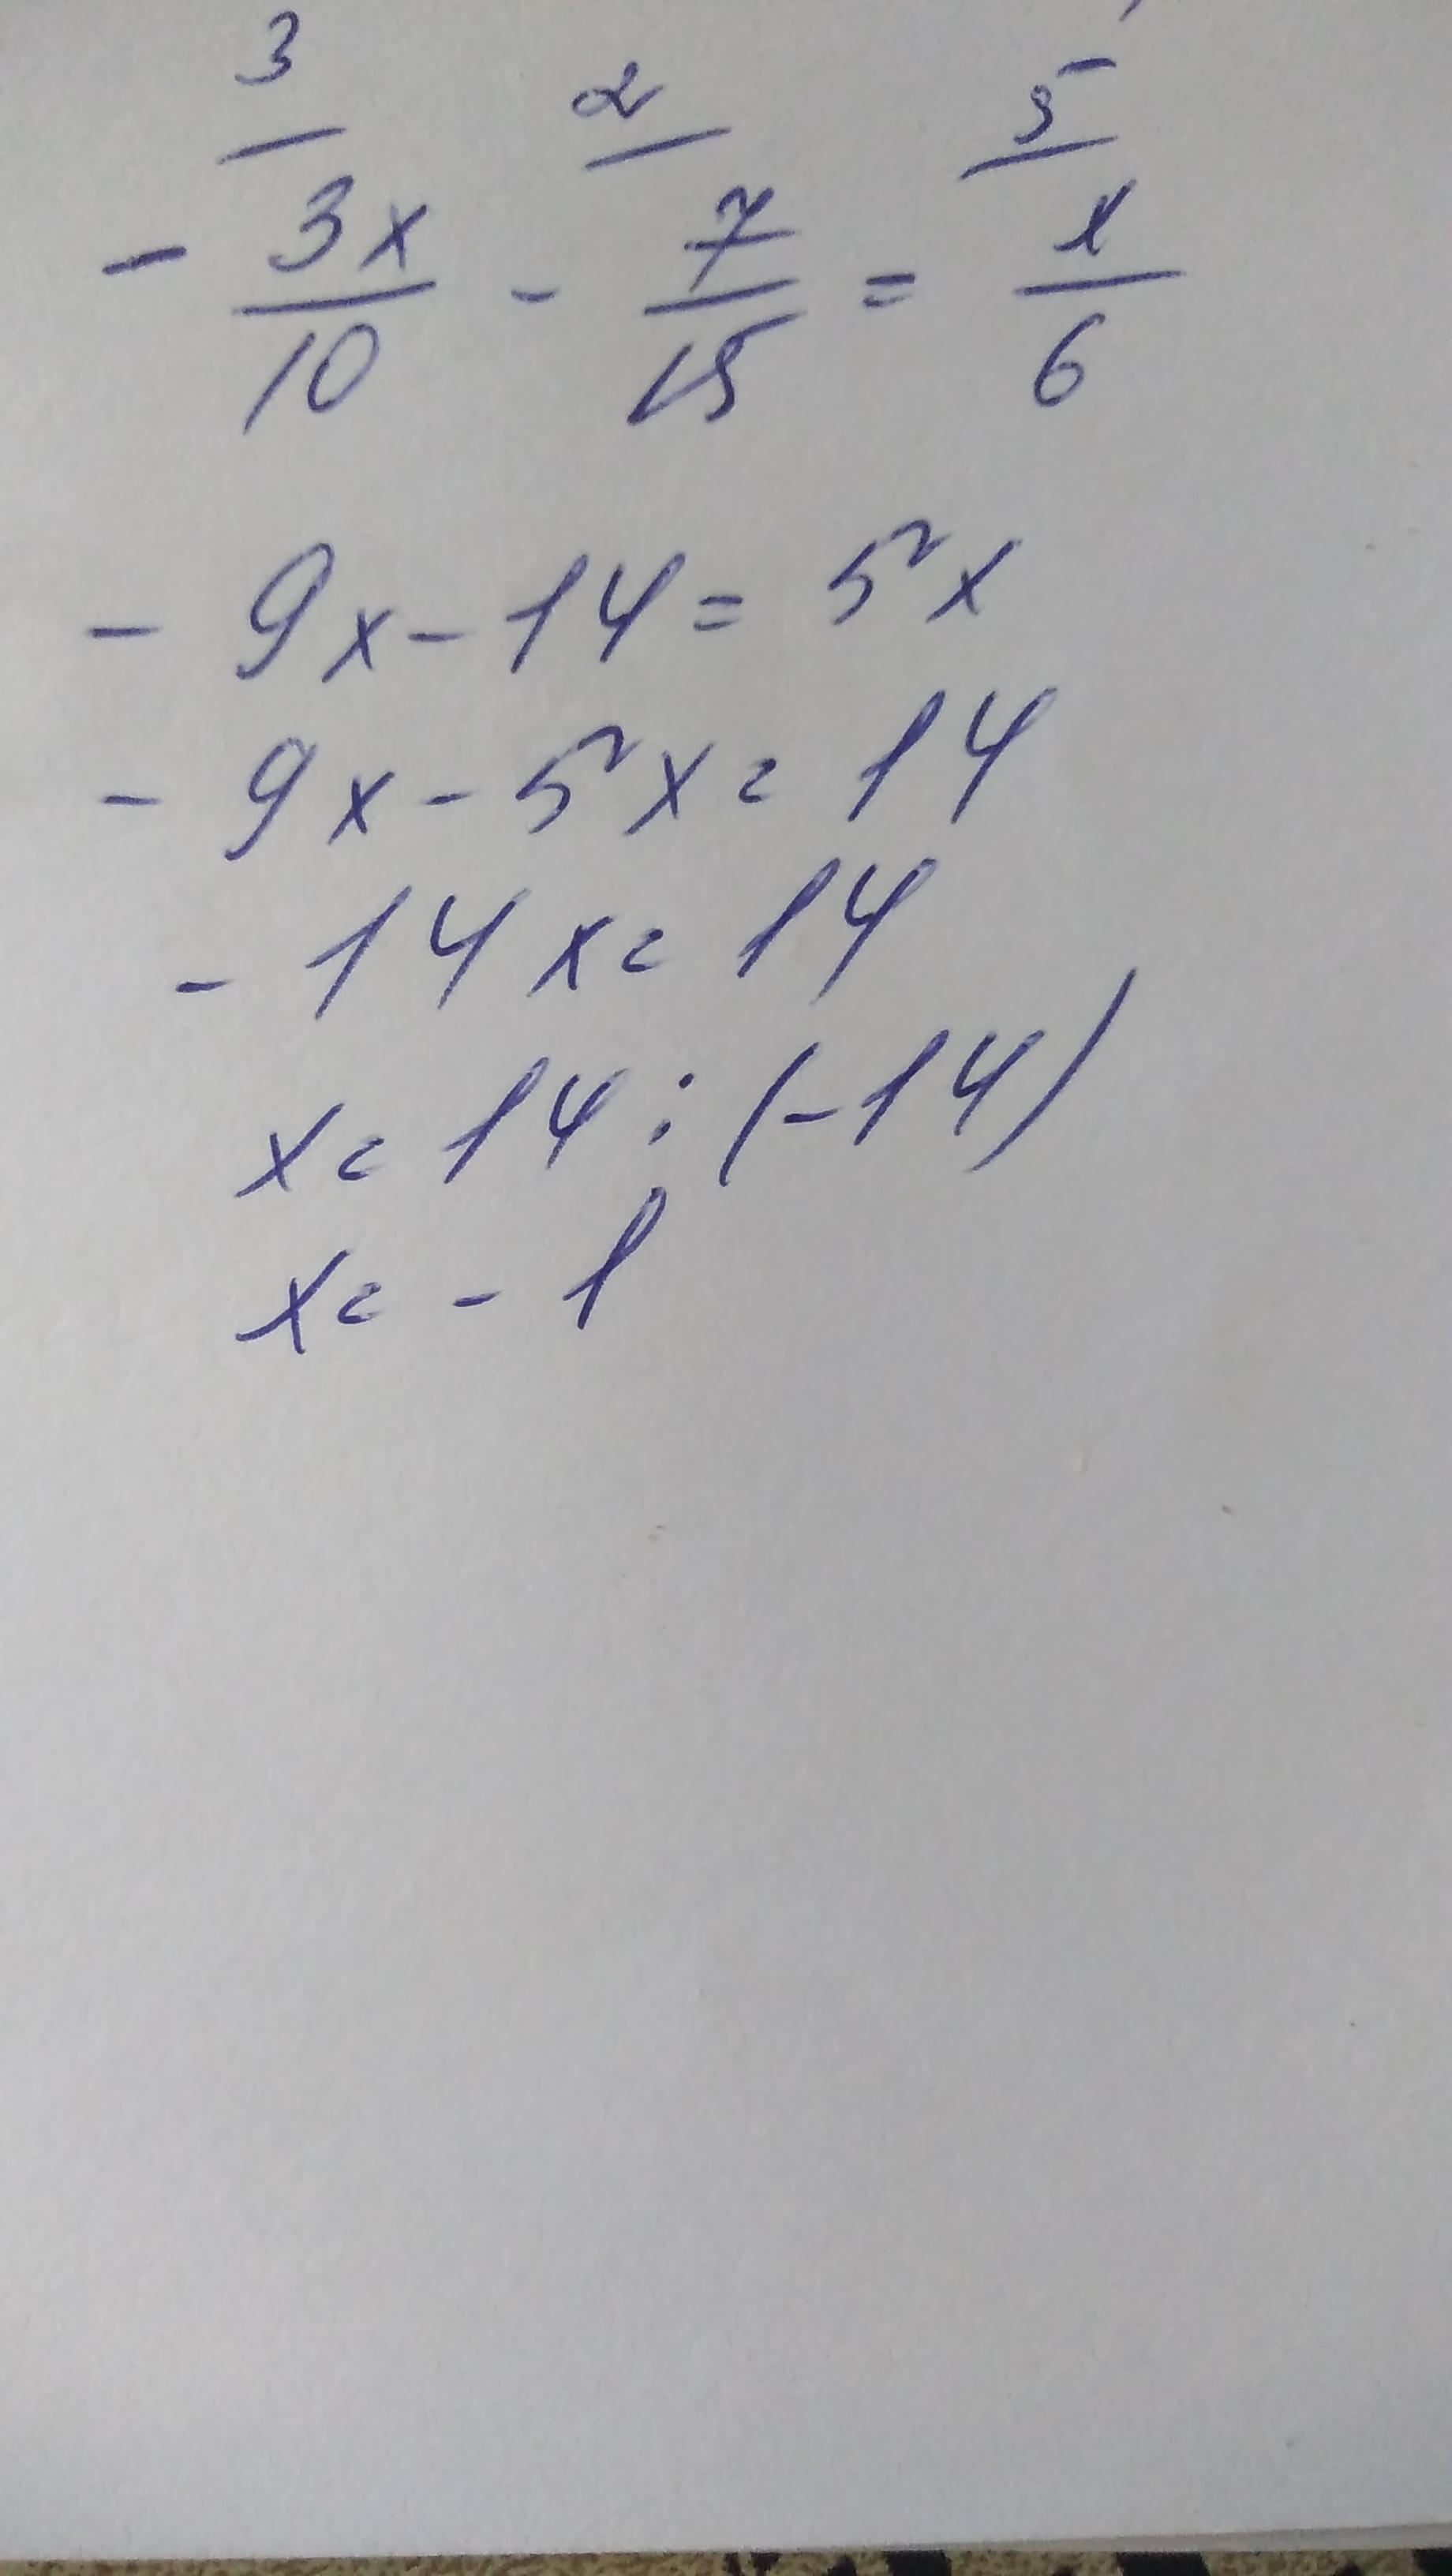 3 2 5
- 3x/10 - 7/15 = x/6
- 9x - 14 = 5x
- 9x - 5x = 14
- 14x = 14
x = 14 : (-14)
x = - 1